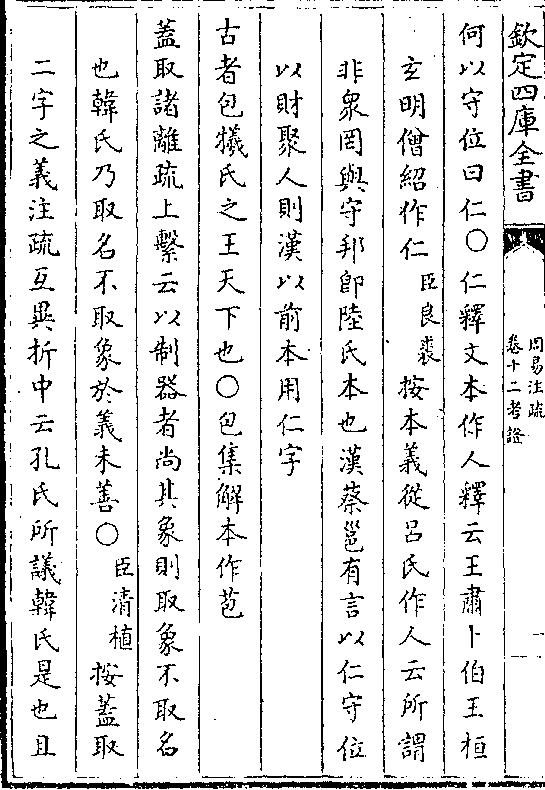 欽定四庫全書
周易注疏
卷十二考證
一
何以守位曰仁〇仁釋文本作人釋云王肅卜伯王桓
玄明僧紹作仁臣良裘按本義從吕氏作人云所謂
非衆罔與守邦即陸氏本也漢蔡邕有言以仁守位
以財聚人則漢以前本用仁字
古者包犧氏之王天下也〇包集解本作苞
蓋取諸離疏上繫云以制器者尚其象則取象不取名
也韓氏乃取名不取象於義未善〇臣清植按蓋取
二字之義注疏互異折中云孔氏所議韓氏是也且